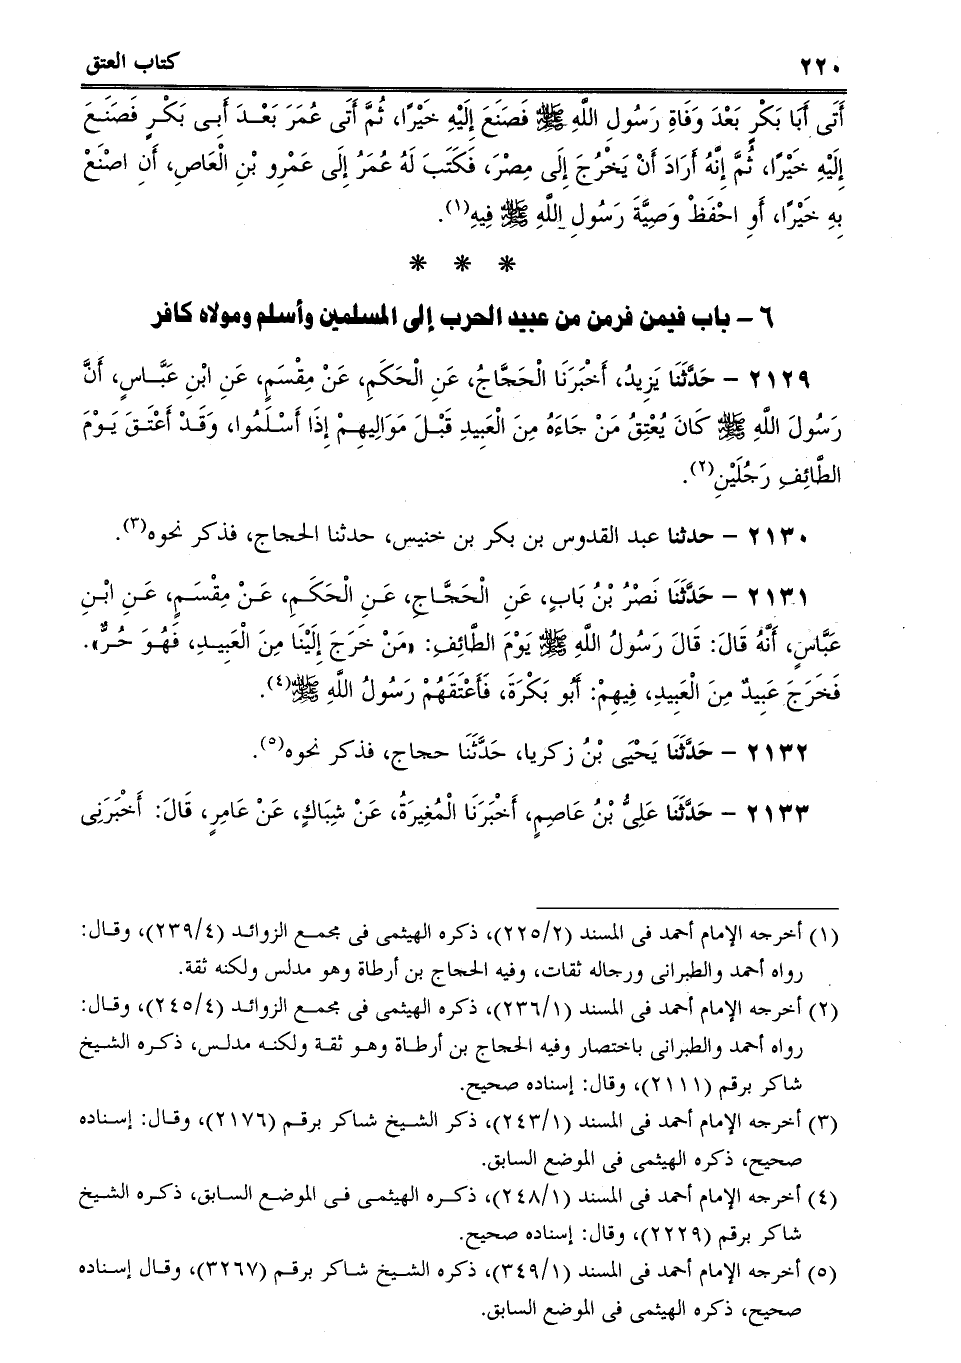 ٢٢٠ كتاب العتق
أَتَى أَبَا بَكْرٍ بَعْدَ وَفَاةِ رَسُولِ اللَّهِ ﷺ فَصَنَعَ إِلَيْهِ خَيْرًا، ثُمَّ أَتَى عُمَرَ بَعْدَ أَبِى بَكْرٍ فَصَنَعَ
إِلَيْهِ خَيْرًا، ثُمَّ إِنَّهُ أَرَادَ أَنْ يَخْرُجَ إِلَى مِصْرَ، فَكَتَبَ لَهُ عُمَرُ إِلَى عَمْرِو بْنِ الْعَاصِ، أَنِ اصْنَعْ
بِهِ خَيْرًا، أَوِ احْفَظْ وَصِيَّةَ رَسُولِ اللَّهِ ﷺ فِيهِ(١).
* * *
٦ – باب فيمن فرمن من عبيد الحرب إلى المسلمين وأسلم ومولاه كافر
٢١٢٩ – حَدَّثَنَا يَزِيدُ، أَخْبَرَنَا الْحَجَّاجُ، عَنِ الْحَكَمِ، عَنْ مِقْسَمٍ، عَنِ ابْنِ عَبَّاسٍ، أَنَّ
رَسُولَ اللَّهِ ﷺ كَانَ يُعْتِقُ مَنْ جَاءَهُ مِنَ الْعَبِيدِ قَبْلَ مَوَالِيهِمْ إِذَا أَسْلَمُوا، وَقَدْ أَعْتَقَ يَوْمَ
الطَّائِفِ رَجُلَيْنِ(٢).
٢١٣٠ – حدثنا عبد القدوس بن بكر بن خنيس، حدثنا الحجاج، فذكر نحوه(٣).
٢١٣١ – حَدَّثَنَا نَصْرُ بْنُ بَابٍ، عَنِ الْحَجَّاجِ، عَنِ الْحَكَمِ، عَنْ مِقْسَمٍ، عَنِ ابْنِ
عَبَّاسٍ، أَنَّهُ قَالَ: قَالَ رَسُولُ اللَّهِ ﷺ يَوْمَ الطَّائِفِ: «مَنْ خَرَجَ إِلَيْنَا مِنَ الْعَبِيدِ، فَهُوَ حُرٌّ».
فَخَرَجَ عَبِيدٌ مِنَ الْعَبِيدِ، فِيهِمْ: أَبُو بَكْرَةَ، فَأَعْتَقَهُمْ رَسُولُ اللَّهِ ﷺ(٤).
٢١٣٢ – حَدَّثَنَا يَحْيَى بْنُ زكريا، حَدَّثَنَا حجاج، فذكر نحوه(٥).
٢١٣٣ – حَدَّثَنَا عَلِىُّ بْنُ عَاصِمٍ، أَخْبَرَنَا الْمُغِيرَةُ، عَنْ شِبَاكٍ، عَنْ عَامِرٍ، قَالَ: أَخْبَرَنِى
(١) أخرجه الإمام أحمد فى المسند (٢٢٥/٢)، ذكره الهيثمى فى مجمع الزوائد (٢٣٩/٤)، وقال:
رواه أحمد والطبرانى ورجاله ثقات، وفيه الحجاج بن أرطاة وهو مدلس ولكنه ثقة.
(٢) أخرجه الإمام أحمد فى المسند (٢٣٦/١)، ذكره الهيثمى فى مجمع الزوائد (٢٤٥/٤)، وقال:
رواه أحمد والطبرانى باختصار وفيه الحجاج بن أرطاة وهو ثقة ولكنه مدلس، ذكره الشيخ
شاكر برقم (٢١١١)، وقال: إسناده صحيح.
(٣) أخرجه الإمام أحمد فى المسند (٢٤٣/١)، ذكر الشيخ شاكر برقم (٢١٧٦)، وقال: إسناده
صحيح، ذكره الهيثمى فى الموضع السابق.
(٤) أخرجه الإمام أحمد فى المسند (٢٤٨/١)، ذكره الهيثمى فى الموضع السابق، ذكره الشيخ
شاكر برقم (٢٢٢٩)، وقال: إسناده صحيح.
(٥) أخرجه الإمام أحمد فى المسند (٣٤٩/١)، ذكره الشيخ شاكر برقم (٣٢٦٧)، وقال إسناده
صحيح، ذكره الهيثمى فى الموضع السابق.